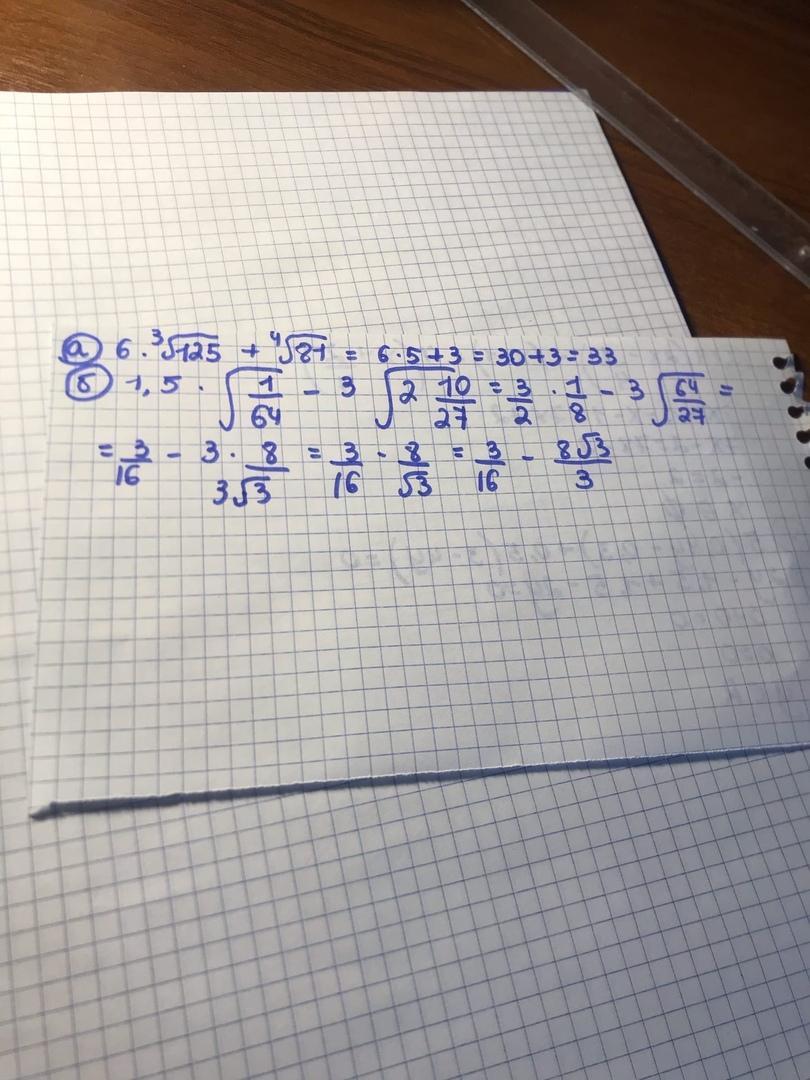 а) 6 · ∛125 + ∜81 = 6·5+3 = 30+3 = 33
б) 1,5 · √(1/64) − 3 √(2 10/27) = 3/2 · 1/8 − 3 √(64/27) =
= 3/16 − 3 · 8/(3√3) = 3/16 - 8/√3 = 3/16 − 8√3/3